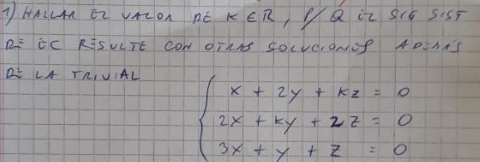 1) HALLAR EL VALOR DE K ∈ R, P/ Q EL SIG SIST
DE EC RESULTE CON OTRAS SOLUCIONES ADEMÁS
DE LA TRIVIAL
x + 2y + kz = 0
2x + ky + 2z = 0
3x + y + z = 0